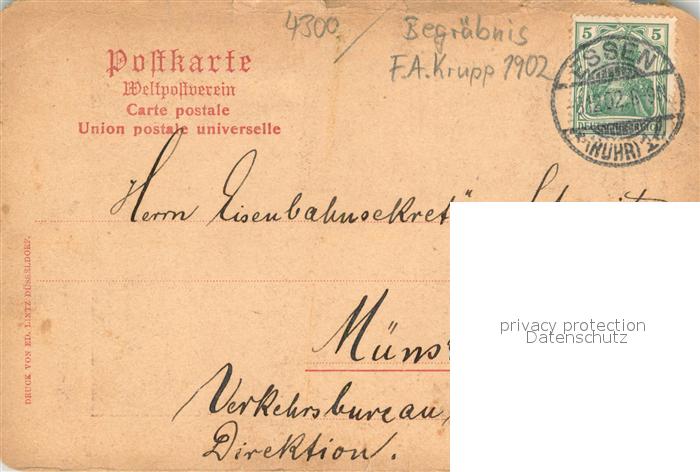 4300/ Begräbnis
F.A.Krupp 1902
5 5
ESSEN
(RUHR)
Postkarte
Weltpostverein
Carte postale
Union postale universelle
Herrn Eisenbahnsekret
Müns
Verkehrsbureau,
Direktion.
DRUCK VON ED. LINTZ DÜSSELDORF.
privacy protection
Datenschutz